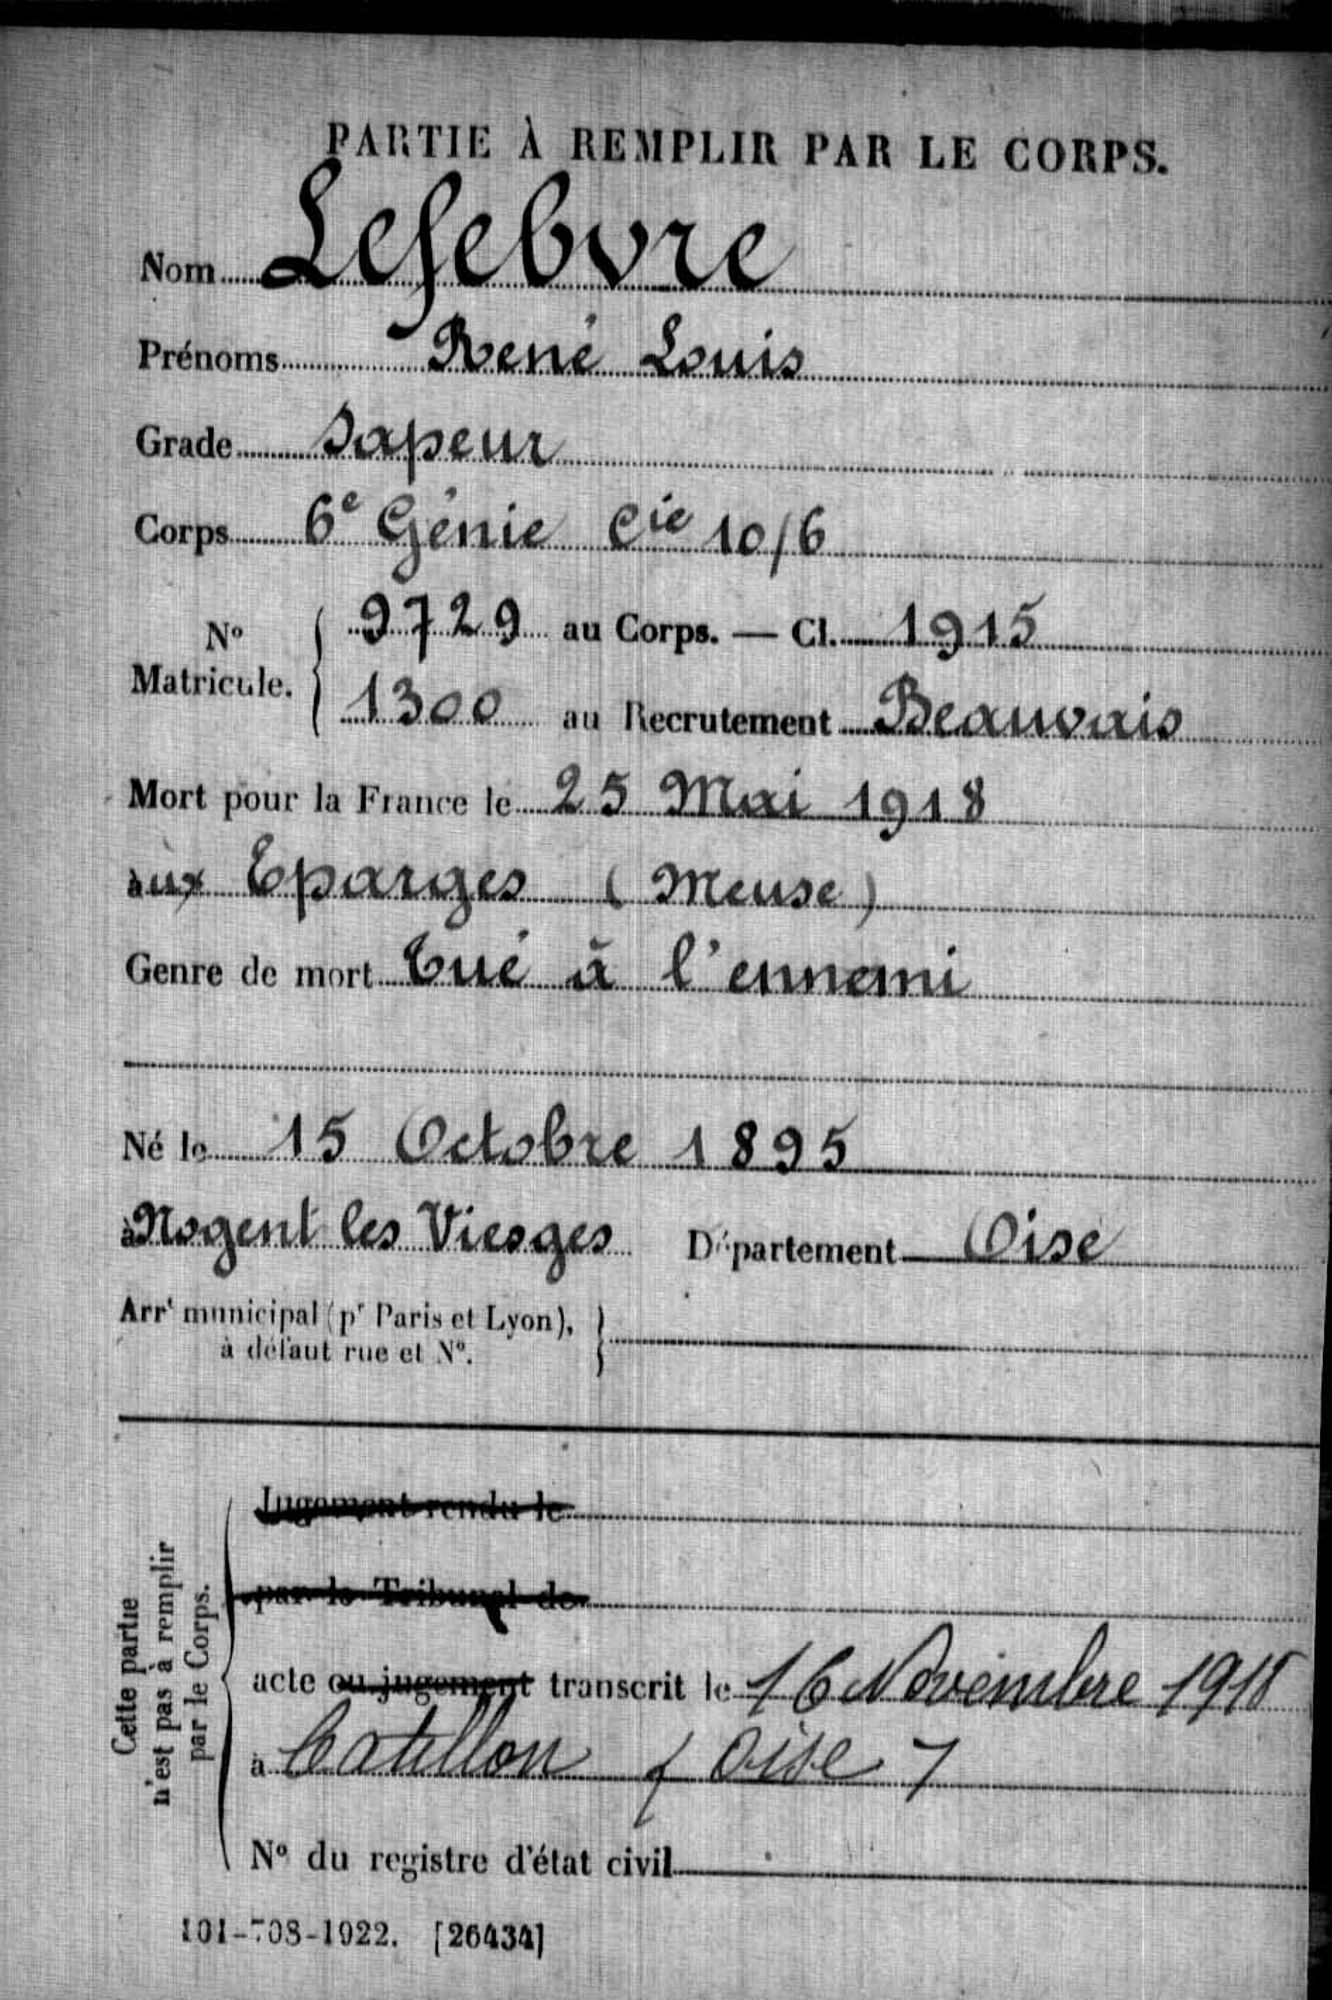 PARTIE À REMPLIR PAR LE CORPS.
Nom Lefebvre
Prénoms René Louis
Grade Sapeur
Corps 6e Génie Cie 10/6
No Matricule. 9729 au Corps. — Cl. 1915
1300 au Recrutement Beauvais
Mort pour la France le 25 Mai 1918
aux Eparges (Meuse)
Genre de mort Tué à l'ennemi
Né le 15 Octobre 1895
à Nogent les Vierges Département Oise
Arrt municipal (pr Paris et Lyon),
à défaut rue et No.
Cette partie
n'est pas à remplir
par le Corps.
Jugement rendu le
par le Tribunal de
acte ou jugement transcrit le 16 Novembre 1918
à Catillon (Oise)
No du registre d'état civil
101-708-1922. [26434]